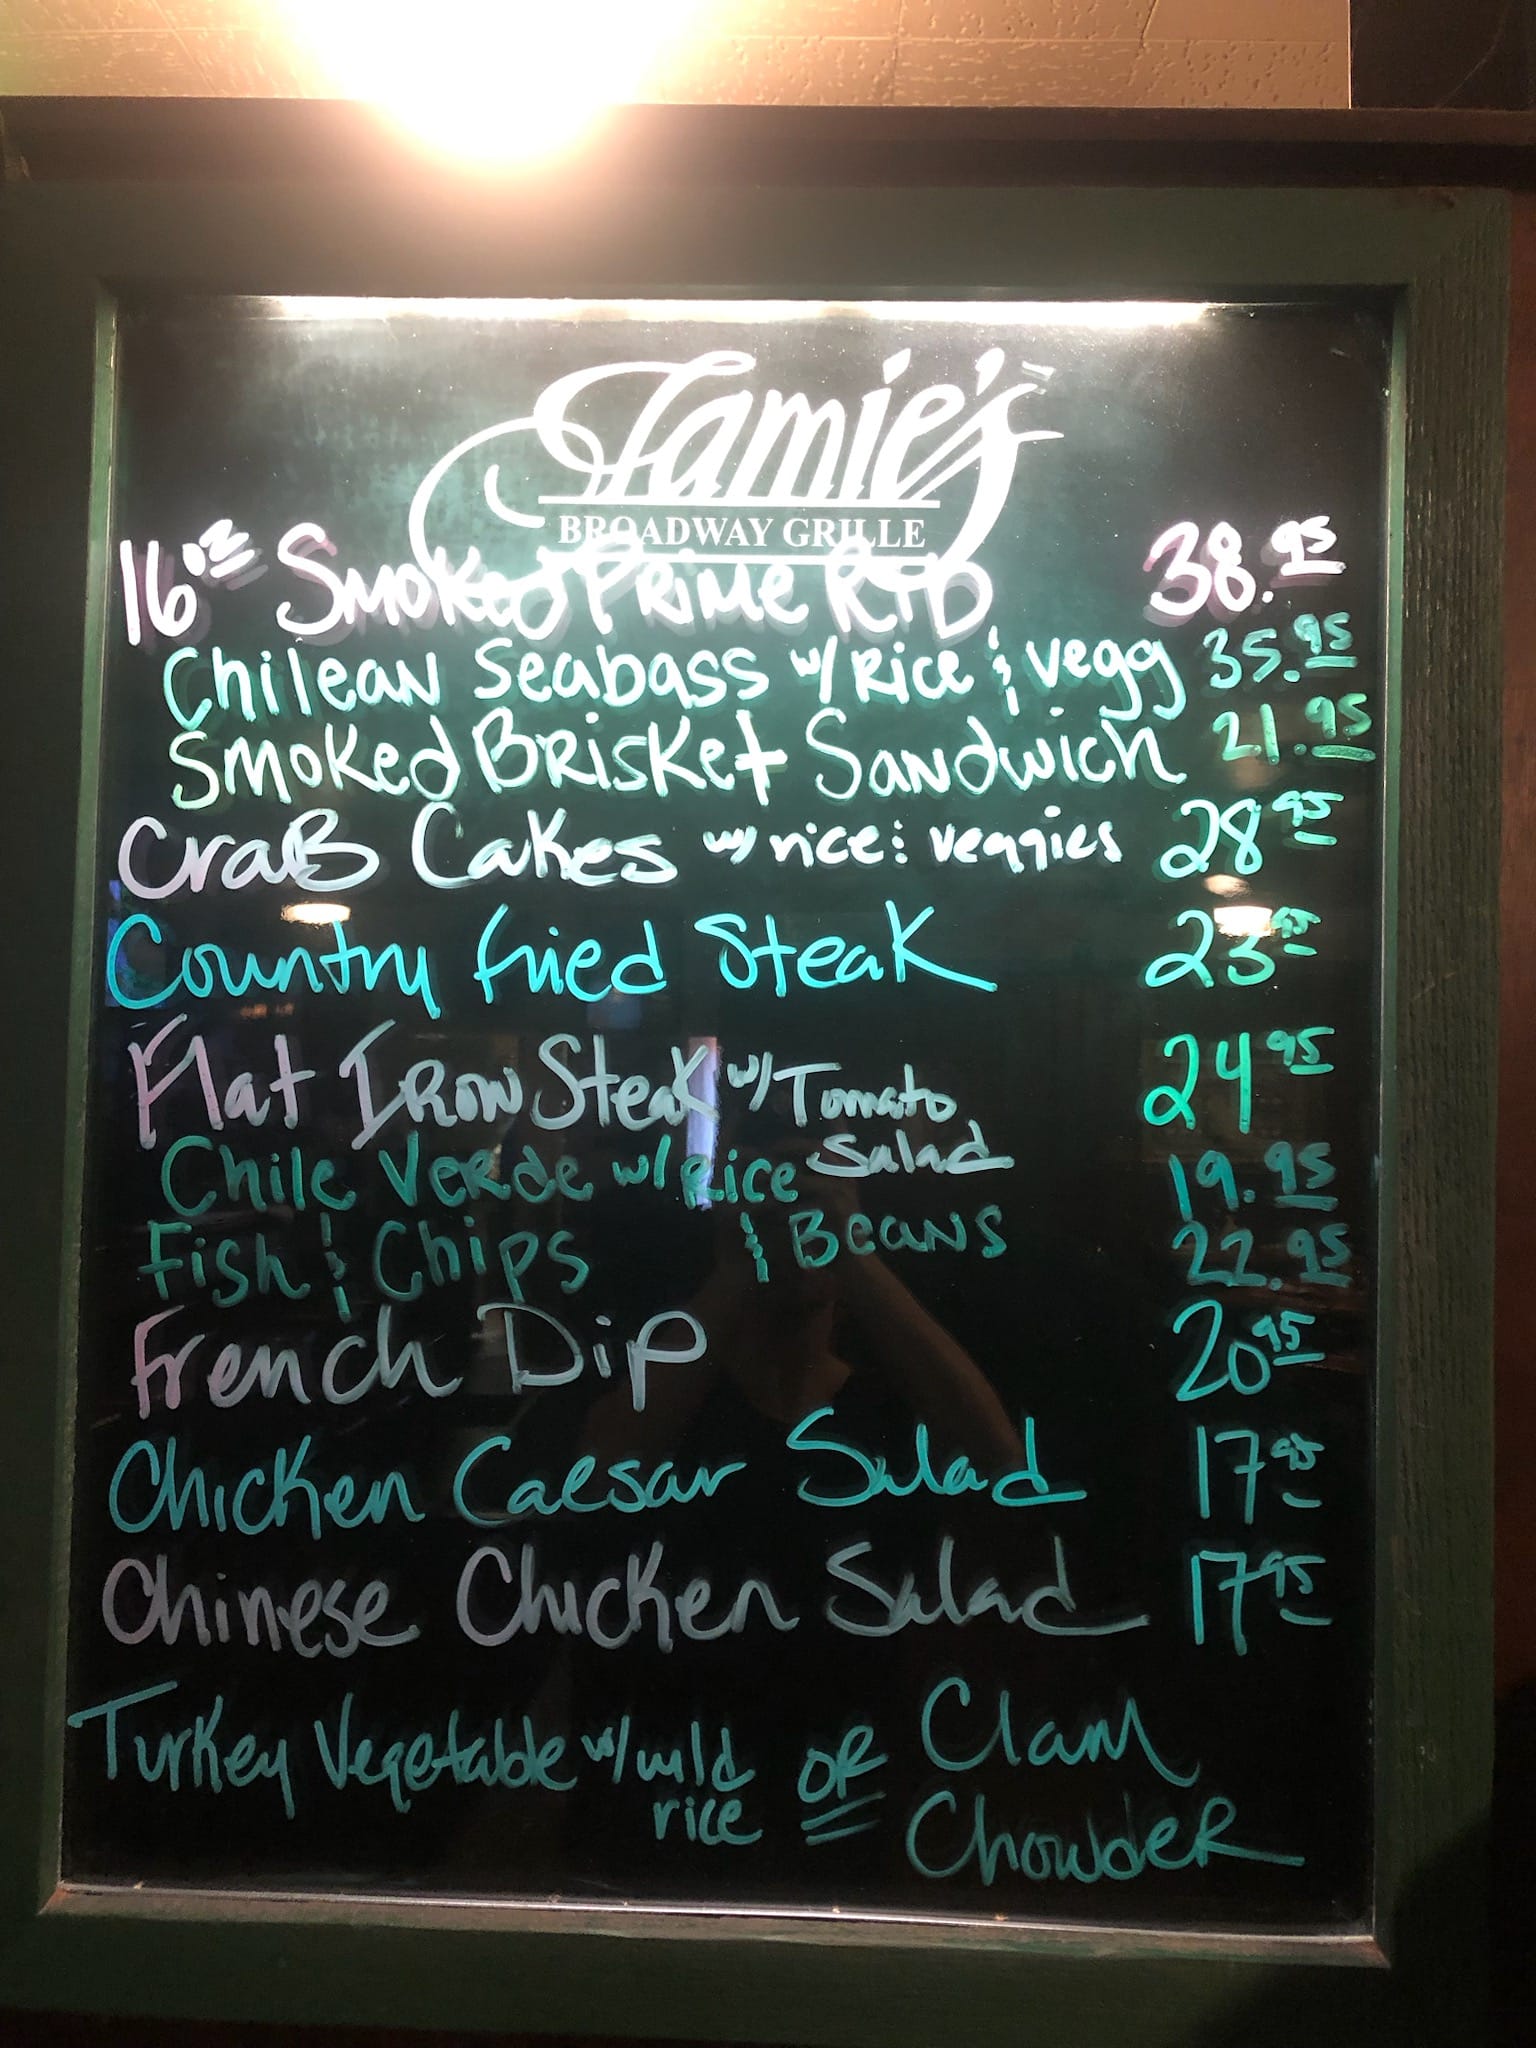 Jamie's
BROADWAY GRILLE
16oz Smoked Prime Rib 38.95
Chilean Seabass w/ Rice & Vegg 35.95
Smoked Brisket Sandwich 21.95
Crab Cakes w/ rice & veggies 28.95
Country fried Steak 23.95
Flat Iron Steak w/ Tomato 24.95
Salad
Chile Verde w/ Rice 19.95
& Beans
Fish & Chips 22.95
French Dip 20.95
Chicken Caesar Salad 17.95
Chinese Chicken Salad 17.95
Turkey Vegetable w/ wild OR Clam
rice Chowder